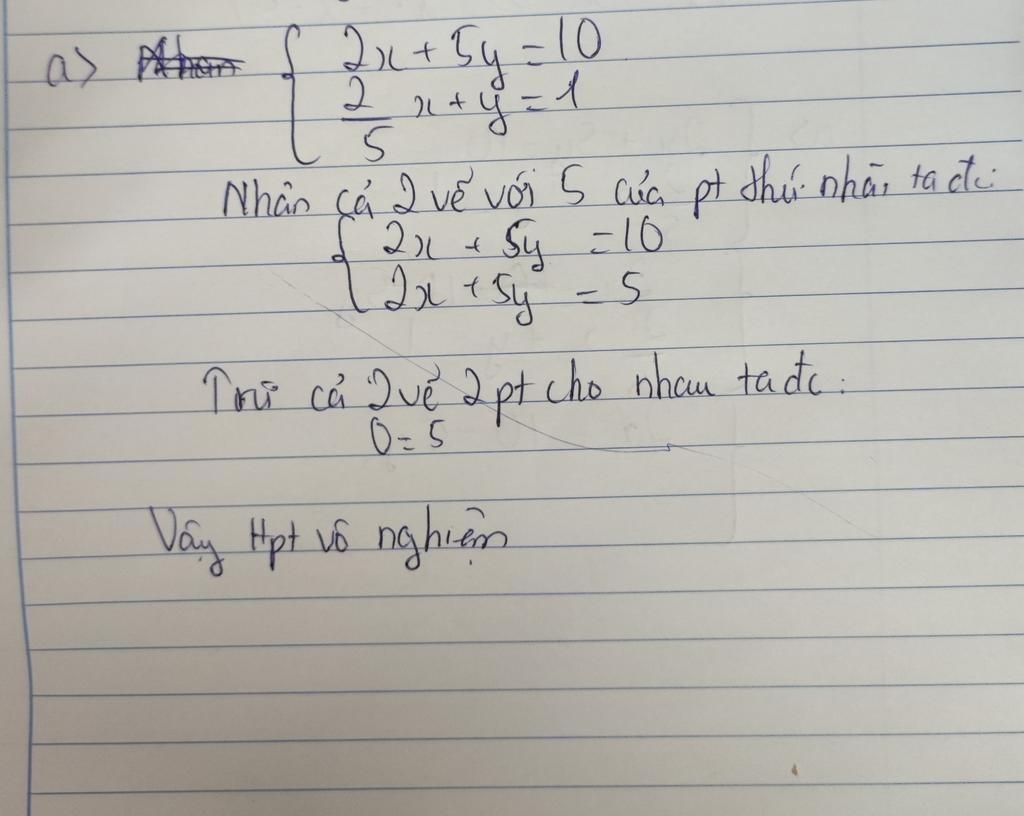 a) Nhân { 2x + 5y = 10
2/5 x + y = 1
Nhân cả 2 vế với 5 của pt thứ nhâ, ta đc:
{ 2x + 5y = 10
2x + 5y = 5
Trừ cả 2 vế 2 pt cho nhau ta đc:
0 = 5
Vậy Hpt vô nghiệm